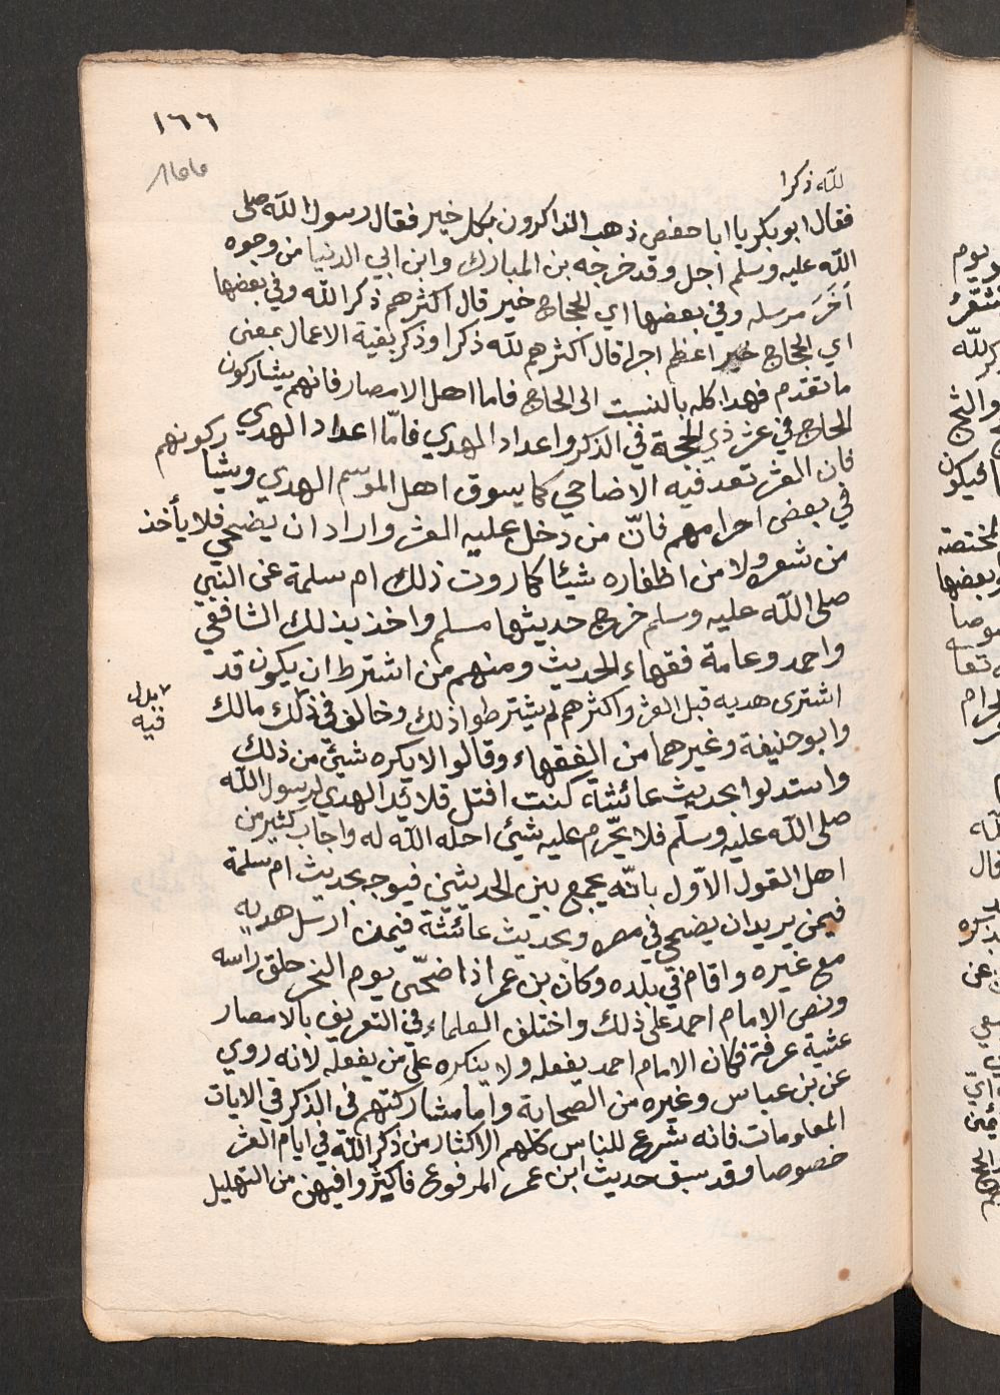 ١٦٦
لله ذكرا
فقال ابو بكر يا ابا حفص ذهب الذاكرون بكل خير فقال رسول الله صلى
الله عليه وسلم اجل وقد خرجه بن المبارك وابن ابي الدنيا من وجوه
اُخَرَ مرسله وفي بعضها اي الحجاج خير قال اكثرهم ذكرا لله وفي بعضها
اي الحجاج اعظم اجرا قال اكثرهم لله ذكرا وذكر بقية الاعمال بمعنى
ما تقدم فهذا كله بالنسبت الى الحاج فاما اهل الامصار فانهم يشاركون
الحاج في عشر ذي الحجة في الذكر واعداد الهدي فامّا اعداد الهدي
فان العشر تعد فيه الاضاحي كما يسوق اهل الموسم الهدي ويشاركونهم
في بعض احرامهم فانّ من دخل عليه العشر واراد ان يضحي فلا يأخذ
من شعره ولا من اظفاره شيئا كما روت ذلك ام سلمة عن النبي
صلى الله عليه وسلم خرج حديثها مسلم واخذ بذلك الشافعي
واحمد وعامة فقهاء الحديث ومنهم من اشترط ان يكون قد
اشترى هديه قبل العشر واكثرهم لم يشترطوا ذلك وخالف في ذلك مالك
بدل
فيه
وابو حنيفة وغيرهما من الفقهاء وقالوا لا يكره شيئ من ذلك
واستدلوا بحديث عائشة كنت افتل قلائد الهدي لرسول الله
صلى الله عليه وسلم فلا يحّرم عليه شيئ احله الله له واجاب كثير من
اهل القول الاوّل بانّه يجمع بين الحديثين فيوجه بحديث ام سلمة
فيمن يريد ان يضحي في مصره وبحديث عائشة فيمن ارسل هديه
مع غيره واقام في بلده وكان بن عمر اذا ضحّى يوم النحر حلق راسه
ونص الامام احمد على ذلك واختلف العلماء في التعريف بالامصار
عشية عرفة فكان الامام احمد يفعله ولا ينكره على من يفعله لانه روي
عن بن عباس وغيره من الصحابة واما مشاركتهم في الذكر في الايات
المعلومات فانه شرع للناس كلهم الاكثار من ذكر الله في ايام العشر
خصوصا وقد سبق حديث ابن عمر المرفوع فاكثروا فيهن من التهليل